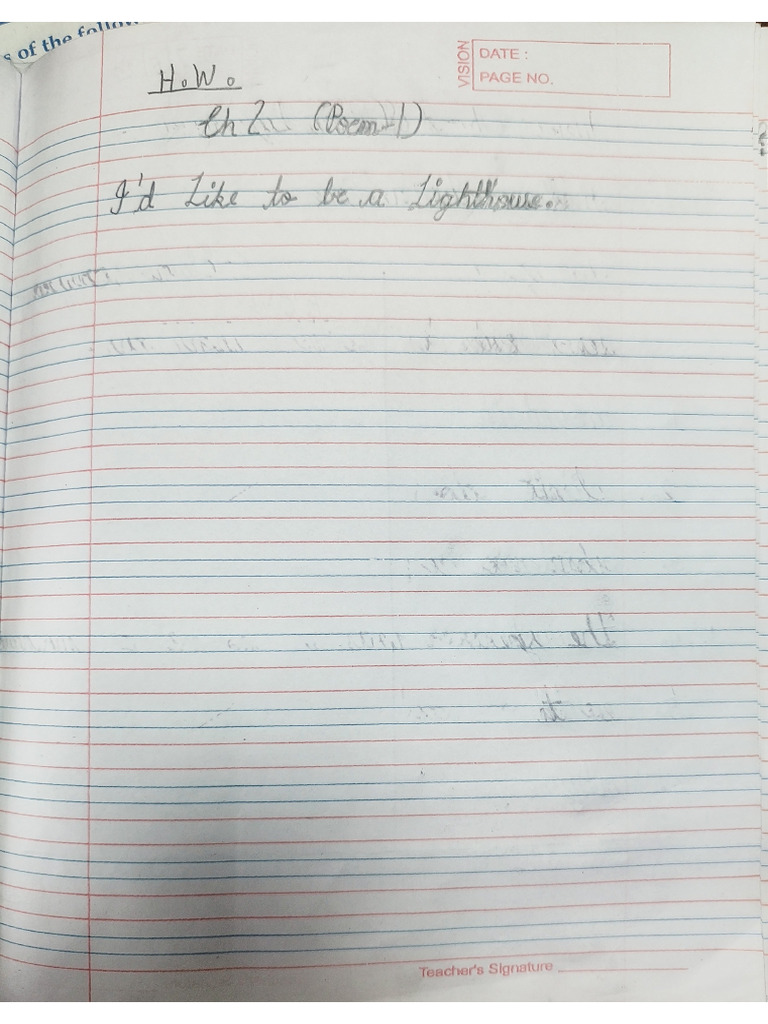 s of the follow
VISION
DATE :
PAGE NO.
H.W.
Ch 2 (Poem-1)
I'd Like to be a Lighthouse.
Teacher's Signature